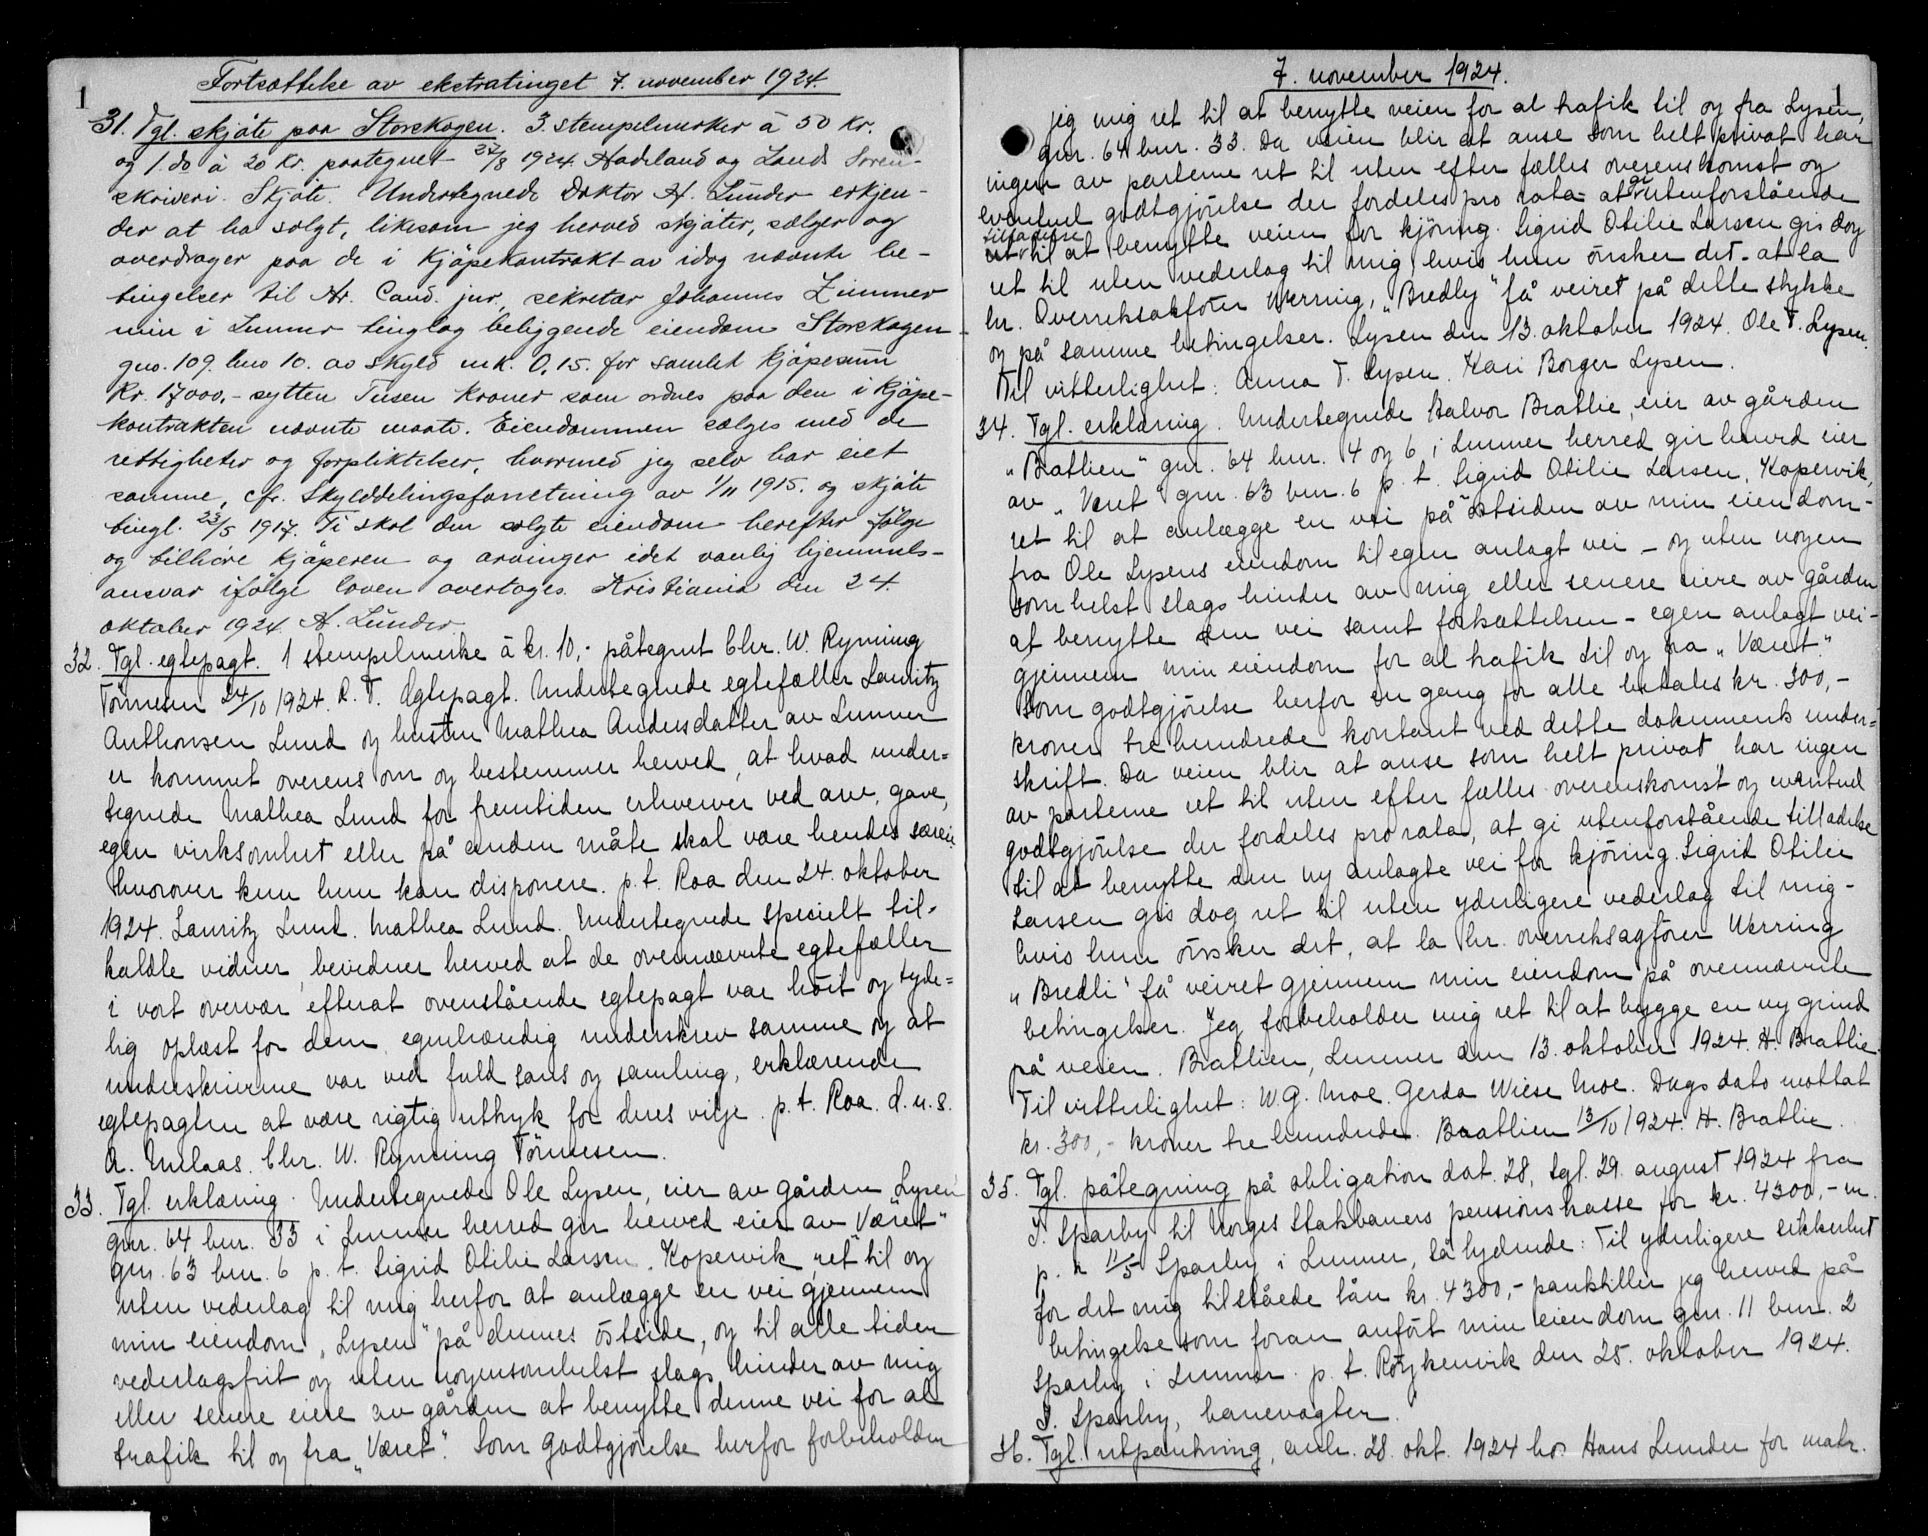 Fortsættelse av ekstratinget 7. november 1924.
1
31. Tgl. skjöte paa Storskogen. 3 stempelmerker à 50 kr.
og 1. do à 20 kr. paategnet 27/8 1924. Hadeland og Lands Soren-
skriveri. Skjöte. Undertegnede Doktor H. Lunder erkjen-
der at ha solgt, likesom jeg herved skjöter, sælger og
overdrager paa de i kjöpekontrakt av idag nævnte be-
tingelser til Hr. Cand. jur, sekretær Johannes Zimmer
min i Lunner tinglag beliggende eiendom Storskogen
gno. 109. bno 10. av skyld mk. 0,15. for samlet kjöpesum
Kr. 17000,- sytten Tusen kroner som ordnes paa den i kjöpe-
kontrakten nævnte maate. Eiendommen sælges med de
rettigheter og forpliktelser, hvormed jeg selv har eiet
samme, cfr. Skylddelingsforretning av 1/11 1915. og skjöte
tingl. 23/5 1917. Ti skal den solgte eiendom herefter fölge
og tilhöre kjöperen og arvinger idet vanlig hjemmels-
ansvar ifölge loven overtages. Kristiania den 24.
oktober 1924. H. Lunder
32. Tgl. egtepagt. 1 stempelmerke à kr. 10,- påtegnet Chr. W. Rynning
Tönnesen 24/10 1924. D. T. Egtepagt. Undertegnede egtefæller Lauritz
Anthonsen Lund og hustru Mathea Andersdatter av Lunner
er kommet overens om og bestemmer herved, at hvad under=
tegnede Mathea Lund for fremtiden erhverver ved arv, gave,
egen virksomhet eller på anden måte skal være hendes særeie
hvorover kun hun kan disponere. p.t. Roa den 24. oktober
1924. Lauritz Lund. Mathea Lund. Undertegnede specielt til-
kaldte vidner, bevidner herved at de ovennævnte egtefæller
i vort overvær efterat ovenstående egtepagt var höit og tyde=
lig oplæst for dem egenhændig underskrev samme og at
underskriverne var ved fuld sans og samling, erklærende
egtepagten at være rigtig uttryk for deres vilje. p.t. Roa. d.u.s.
A. Chr. W. Rynning Tönnesen.
33. Tgl. erklæring. Undertegnede Ole Lysen, eier av gården "Lysen"
gnr. 64 bnr. 33 i Lunner herred gir herved eier av "Været"
gnr. 63 bnr. 6 p.t. Sigrid Otilie Larsen, Kopervik, ret til og
uten vederlag til mig herfor at anlægge en vei gjennem
min eiendom "Lysen" på dennes östside, og til alle tider
vederlagsfrit og uten nogensomhelst slags hinder av mig
eller senere eiere av gården at benytte denne vei for al
trafik til og fra "Været". Som godtgjörelse herfor forbeholder
7. november 1924.
1
jeg mig ret til at benytte veien for al trafik til og fra Lysen,
gnr. 64 bnr. 33. Da veien blir at anse som helt privat har
ingen av parterne ret til uten efter fælles overenskomst og
eventuel godtgjörelse der fordeles pro rata - at gi utenforstående
tilladelse
ret til at benytte veien for kjöring. Sigrid Otilie Larsen gis dog
ret til uten vederlag til mig hvis hun önsker det - at la
hr. Overretssakförer Werring, "Bredly" få veiret på dette stykke
og på samme betingelser. Lysen den 13. oktober 1924. Ole T. Lysen.
Til vitterlighet: Anna T. Lysen. Kari Borger Lysen.
34. Tgl. erklæring. Undertegnede Halvor Bratlie, eier av gården
"Bratlien" gnr. 64 bnr. 4 og 6 i Lunner herred gir herved eier
av "Været" gnr. 63 bnr. 6 p.t. Sigrid Otilie Larsen, Kopervik,
ret til at anlægge en vei på östsiden av min eiendom-
fra Ole Lysens eiendom til egen anlagt vei - og uten nogen
somhelst slags hinder av mig eller senere eiere av gården
at benytte den vei samt fortsættelsen - egen anlagt vei -
gjennem min eiendom for al trafik til og fra "Været".
Som godtgjörelse herfor en gang for alle betales kr. 300,-
kroner tre hundrede kontant ved dette dokuments under=
skrift. Da veien blir at anse som helt privat har ingen
av parterne ret til uten efter fælles overenskomst og eventuel
godtgjörelse der fordeles pro rata, at gi utenforstående tilladelse
til at benytte den ny anlagte vei for kjöring. Sigrid Otilie
Larsen gis dog ret til uten yderligere vederlag til mig -
hvis hun önsker det, at la hr. overretssagförer Werring
"Bredli" få veiret gjennem min eiendom på ovennævnte
betingelser. Jeg forbeholder mig ret til at bygge en ny grind
på veien. Bratlien, Lunner den 13. oktober 1924. H. Bratlie.
Til vitterlighet: W.G. Moe. Gerda Wiese Moe. Dags dato mottat
kr. 300,- kroner tre hundrede. Braatlien 13/10 1924. H. Bratlie.
35. Tgl. påtegning på obligation dat. 28, tgl. 29. august 1924 fra
J. Sparby til Norges Statsbaners pensionskasse for kr. 4300,- m.
p. i 11/5 Sparby i Lunner, så lydende: Til yderligere sikkerhet
for det mig tilståede lån kr. 4300,- pantstiller jeg herved på
betingelse som foran anfört min eiendom gnr. 11 bnr. 2
Sparby i Lunner. p.t. Röykenvik den 25. oktober 1924.
J. Sparby, banevogter.
36. Tgl. utpantning, avh. 28. okt. 1924 hos Hans Lunder for matr.